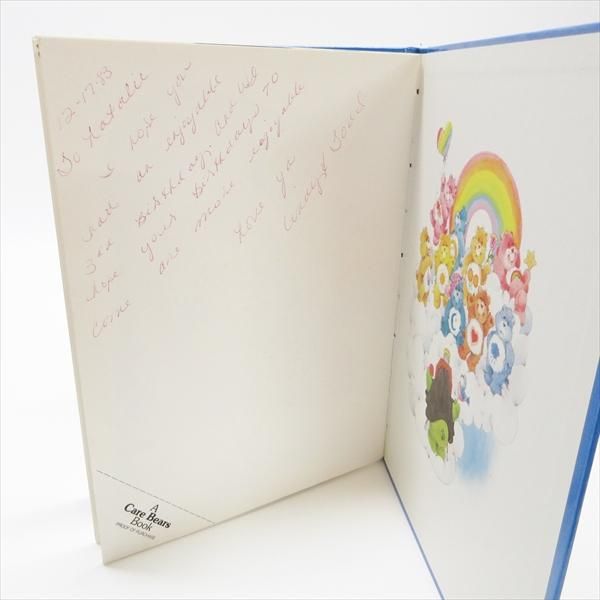 12-17-83
To Natalie
I hope you
have an enjoyable
3rd Birthday, and all
hope your Birthdays to
come are more enjoyable
Love ya
A
Care Bears
Book
PROOF OF PURCHASE